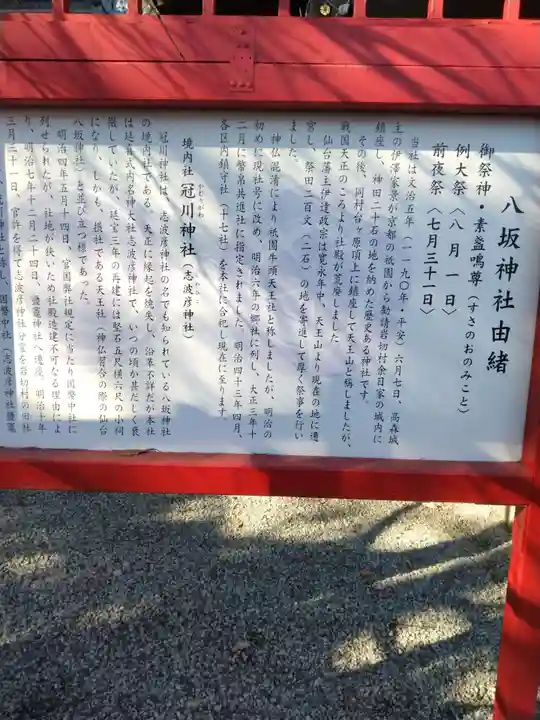 八坂神社由緒
御祭神・素盞鳴尊(すさのおのみこと)
例大祭〈八月一日〉
前夜祭〈七月三十一日〉
当社は文治五年(一一九〇年・平安)六月七日、高森城
主の伊澤家景が京都の祇園から勧請岩切村余目家の城内に
鎮座し、神田二十石の地を納めた歴史ある神社です。
その後、同村台ヶ原頂上に鎮座して天王山と称しましたが、
戦国天正のころより社殿が荒廃しました。
仙台藩主伊達政宗は寛永年中、天王山より現在の地に遷
宮し、祭田二百文(二石)の地を寄進して厚く祭事を行い
ました。
神仏混淆により祇園牛頭天王社と称しましたが、明治の
初めに現社号に改め、明治六年の郷社に列し、大正三年十
二月に幣帛共進社に指定されました。明治四十三年四月、
各区内鎮守社(十七社)を本社に合祀し現在に至ります。
境内社 冠川神社(志波彦神社)
かむりがわ
冠川神社は、志波彦神社の名でも知られている八坂神社
の境内社である。天正に縁起を焼失し、沿革不詳だが本社
は延喜式内名神大社志波彦神社で、いつの頃か甚だしく衰
微していたが、延宝三年の再建には堅石五尺横六尺の小祠
になり、しかも、摂社である天王社(神仏習合の際の仙台
八坂神社)と並び立つ様であった。
明治四年五月十四日、官国弊社規定に当たり国幣中社に
列せられたが、社地が狭いため社殿造建不可なる理由によ
り、明治七年十二月二十四日、鹽竈神社へ遷座、明治十年
三月二十一日、官許を得て志波彦神社分霊を岩切村の旧社